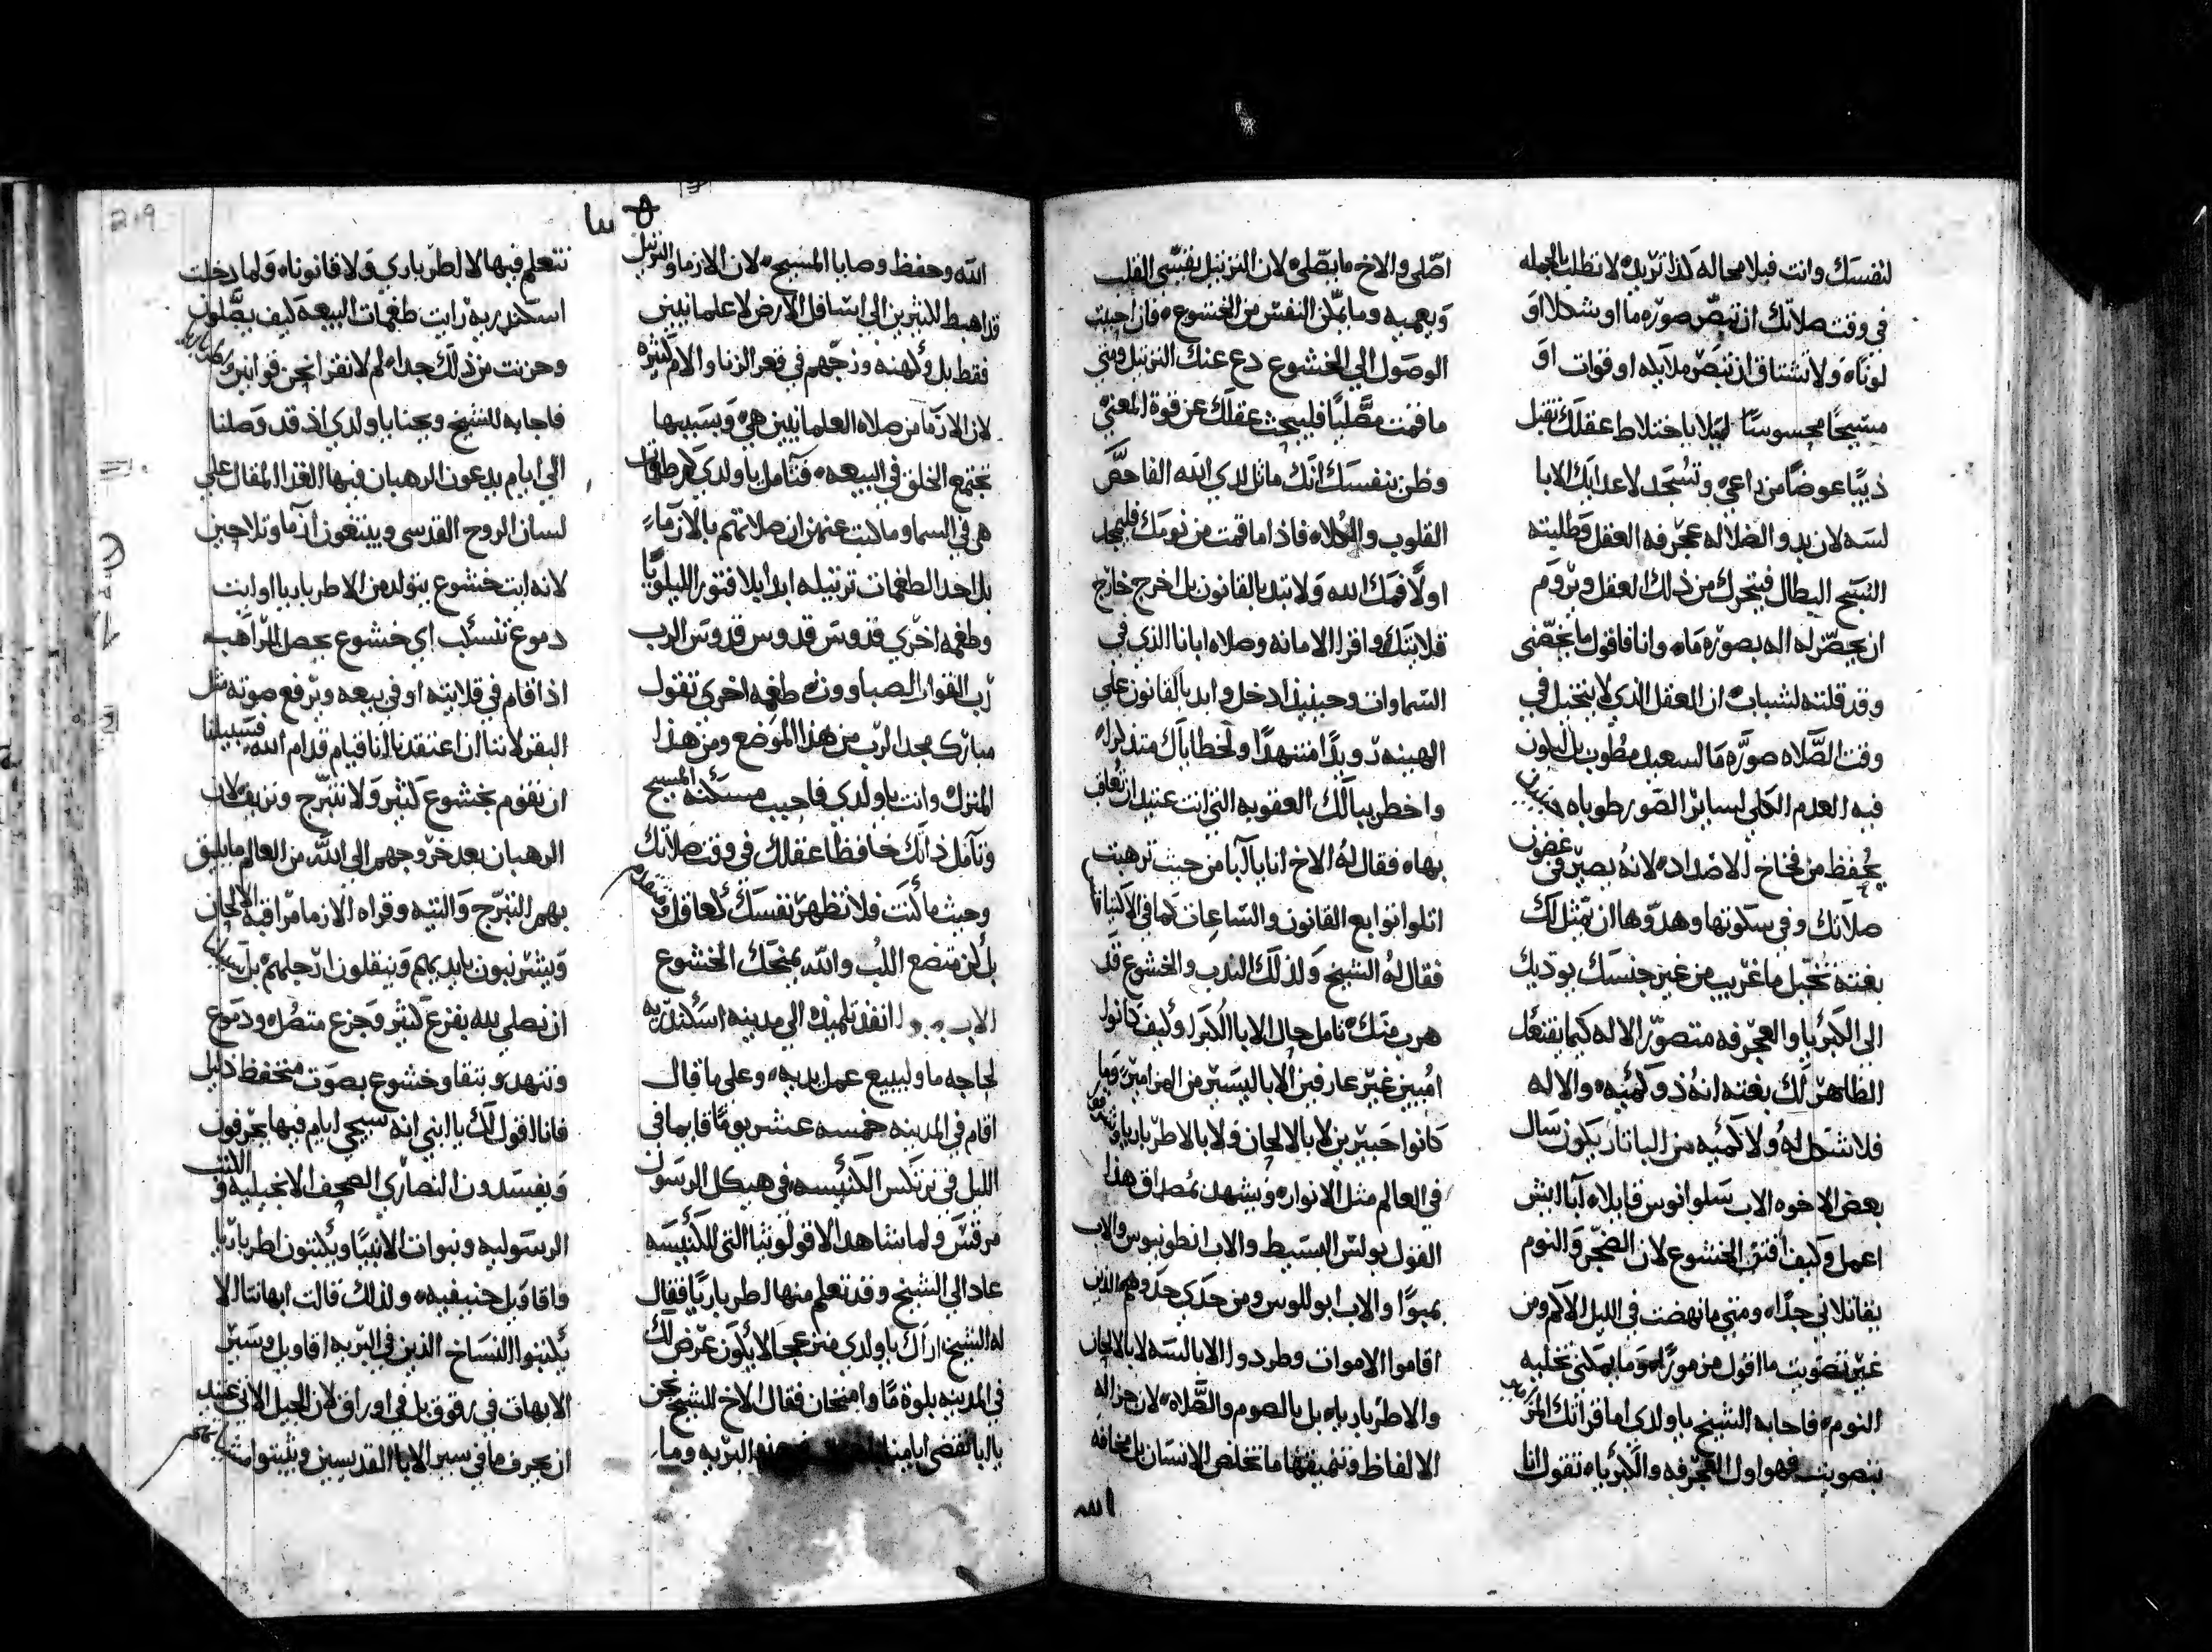 لنفسك وانت فبلا محاله لذا تريك لا تظلب بالجمله
في وقت صلاتك ان تبصر صوره ما او شكلا او
لونا ولا تشتاق ان تبصر ملايكه او قوات او
مسيحا محسوسا ليلا باختلاط عقلك تقبل
ذيبا عوضا من راعي وتسجد لاعدايك الابا
لسه لان بدو الضلاله عجرفه العقل وطلبته
السبح البطال فيتحرك من ذلك العقل ويروم
ان يحصر له اله بصوره ما وانا فاقول ما يخصني
وقد قلته لشباب ان العقل الذي لا يتخيل في
وقت الصلاه صوره ما لسعيد مطوب بل يكون
فيه العدم الكلي لساير الصور طوباه
يحفظ من فخاخ الاضداد لانه يصير في غضون
صلاتك وفي سكوتها وهدوها ان يمثل لك
بغته تخيل ما غريب من غير جنسك يوديك
الى الكبريا والعجرفه متصور الاله كيما يفتعل
الظاهر لك بغته انه ذو كميه والاله
فلا شكل له ولا كميه من الباتار يكون سال
بعض الاخوه الاب سلوانوس قايلا ابا ايش
اعمل وكيف اقتني الخشوع لان الضجر والنوم
يقاتلاني جدا ومتى ما نهضت في الليل الاكم ومن
غير تصويت ما اقول مزمورا وما يمكني تخليه
النوم فاجابه الشيخ ياولدي اما قراتك المزمير
بتصويت فهو اول العجرفه والكبرياء تقول انا
اصلي والاخ ما يصلي لان الترتيل يقسي القلب
ويعميه وما يمكن النفس من الخشوع فان احببت
الوصول الى الخشوع دع عنك الترتيل ومتى
ما قمت مصليا فليبحث عقلك عن قوة المعنى
وظن بنفسك انك ماثل لدي الله الفاحص
القلوب والكلاه فاذا ما قمت من نومك فليمجد
اولا فمك الله ولا تبد بالقانون بل اخرج خارج
قلايتك واقرا الامانه وصلاه ابانا الذي في
السماوات وحينيذ ادخل وابد بالقانون على
الهينه رويدا متنهدا ولخطاياك متذكرا
واخطر ببالك العقوبه التي انت عتيد ان تعاقب
بها فقال له الاخ انا يا ابا من حيث ترهبت
اتلوا توابع القانون والساعات كما في الاكتبانا
فقال له الشيخ ولذلك الندب والخشوع قد
هرب منك تامل حال الابا الكبرا وكيف كانوا
اميين غير عارفين الا باليسير من المزامير وما
كانوا خبيرين لا بالالحان ولا بالاطرباريا
في العالم مثل الانوار ويشهد بمصداق هذا
القول بولس البسيط والاب انطونيوس والاب
بمبوا والاب ابوللوس ومن حدي حدوهم الذين
اقاموا الاموات وطردوا الابالسه لا بالالحان
والاطرباريا بل بالصوم والصلاه لان جزاله
الالفاظ وتنميقها ما تخلص الانسان بل مخافه
الله
الله وحفظ وصايا المسيح لان الازما والترتيل
قد اهبط الكثيرين الى اسافل الارض لا علمانيين
فقط بل وكهنه وزجهم في قعر الزنا والام كثيره
لان الازما من صلاه العلمانيين هي وبسببها
تجتمع الخلق في البيعه فتامل ياولدي كم طغمات
هي في السما وما كتب عنهن ان صلاتهم بالازما
بل احد الطغمات ترتيله ابدا بلا فتور الليلويا
وطغمه اخرى قدوس قدوس قدوس الرب
رب القوات الصباووت طغمه اخرى تقول
مبارك مجد الرب من هذا الموضع ومن هذا
المنزل وانت ياولدي فاحبب مسكنه المسيح
وتامل ذاتك حافظا عقلك في وقت صلاتك
وحيث ما كنت فلا تظهر نفسك كعاقل
بل كن متضع اللب والله يمنحك الخشوع
الاب انفذ تلميذه الى مدينه اسكندريه
لحاجه ما وليبيع عمل يديه وعلى ما قال
اقام في المدينه خمسه عشر يوما قايما في
الليل في نرتكس الكنيسه في هيكل الرسول
مرقس ولما شاهد الاقولوثيا التي للكنيسه
عاد الى الشيخ وقد تعلم منها طرباريا فقال
له الشيخ اراك ياولدي منزعجا الا يكون عرض لك
في المدينه بلوة ما وامتحان فقال الاخ للشيخ نحن
يا ابا نقضي ايامنا البريه وما
نتعلم فيها لا اطرباري ولا قانونا ولما دخلت
اسكندريه رايت طغمات البيعه كيف يصلون
وحزنت من ذلك جدا لم لا نقرا نحن قوانين
فاجابه الشيخ ويحنا ياولدي اذ قد وصلنا
الى ايام يدعون الرهبان فيها الغذا المقال على
لسان الروح القدسي ويبتغون ازما وتلاحين
لانه ايت خشوع يتولد من الاطرباريا او ايت
دموع تنسكب اي خشوع يحصل للراهب
اذا قام في قلايته او في بيعه ويرفع صوته مثل
البقر لاننا ان اعتقدنا اننا قيام قدام الله فسبيلنا
ان نقوم بخشوع كثير ولا نتبرج ونزيف لان
الرهبان بعد خروجهم الى الله من العالم ما يليق
بهم التبرج والتيه وقراه الازما مراقبه الالحان
ويشرنبون بايديهم وينقلون ارجلهم بل
ان نصلي لله بفزع كثير وجزع متصل ودموع
وتنهد وبتقا وخشوع بصوت منخفظ ذليل
فانا اقول لك يا ابني انه سيجي ايام فيها يحرفون
ويفسدون النصارى الصحف الانجيليه والكتب
الرسوليه ونبوات الانبيا ويكتبون اطرباريا
واقاويل حنيفيه ولذلك قالت ابهاتنا الا
يكتبوا النساخ الذين في البريه اقاويل وسير
الابهات في رقوق بل في اوراق لان الجيل الاتي عتيد
ان يحرف ما في سير الابا القديسين ويثبتوا